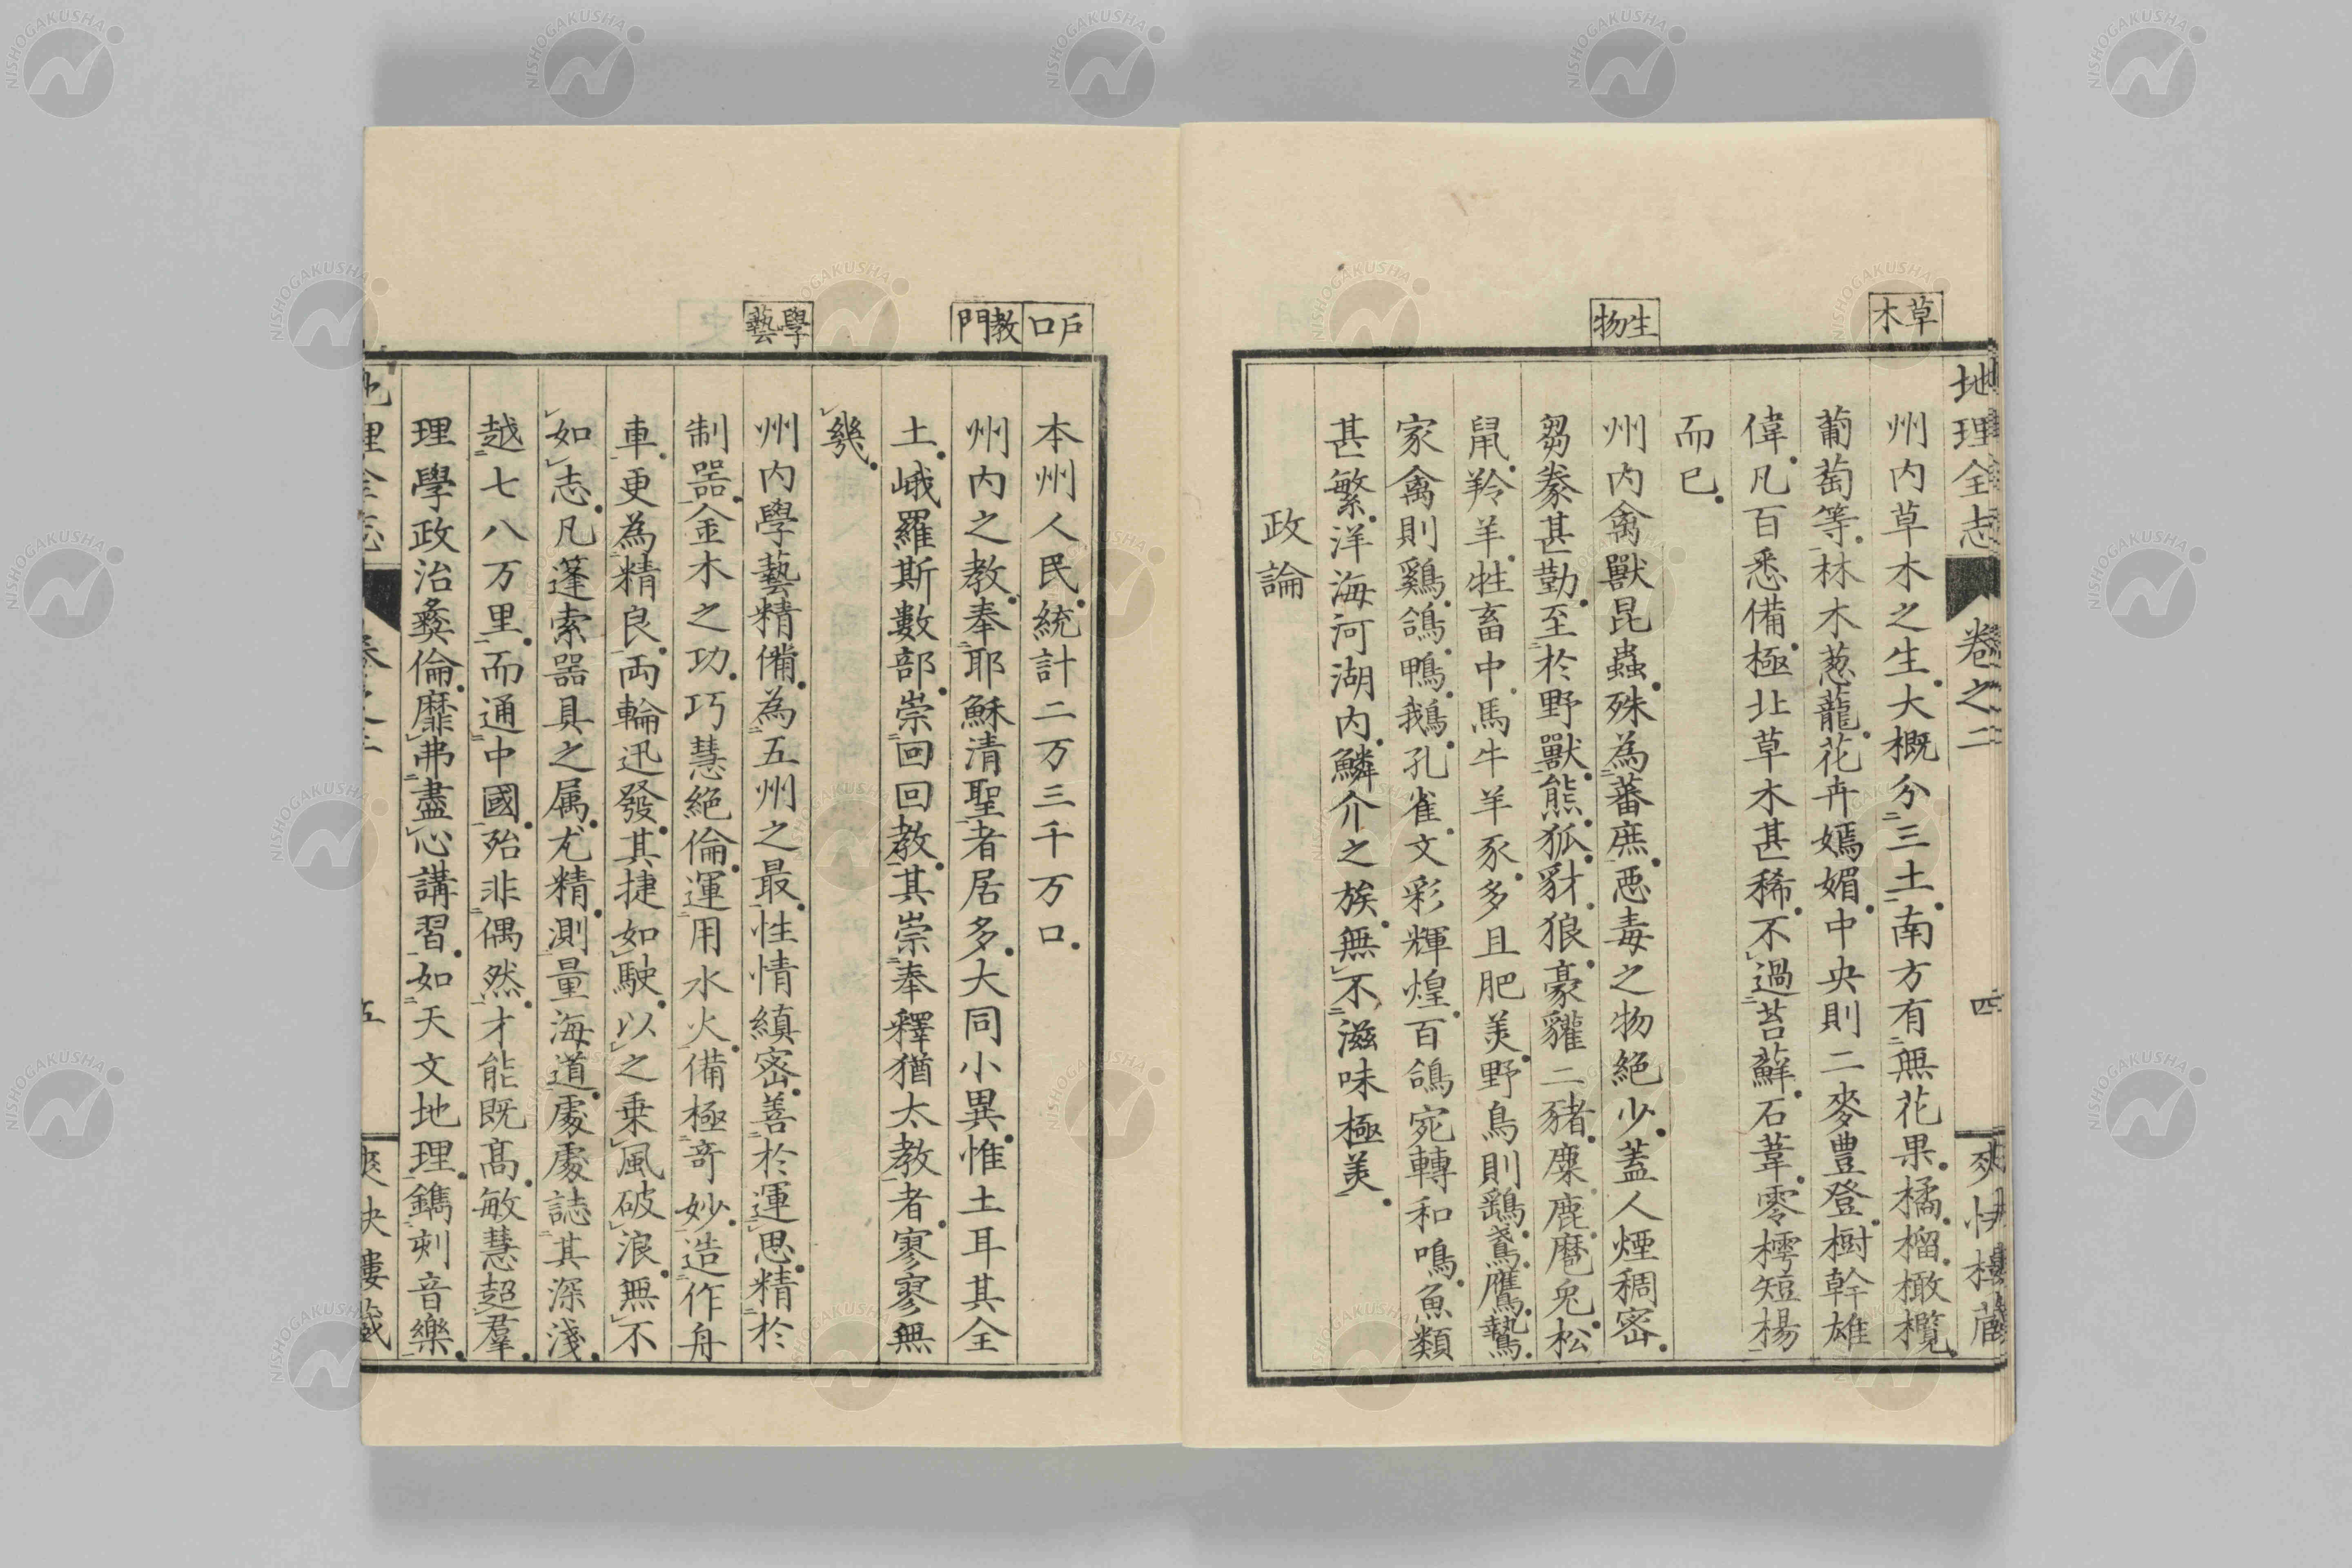 地理全志 卷之二 四 爽快樓藏
草木
州内草木之生大概分三土南方有無花果橘榴橄欖
葡萄等林木葱蘢花卉嫣媚中央則二麥豊登樹幹雄
偉凡百悉備極北草木甚稀不過苔蘚石葦零樗短楊
而已
生物
州内禽獸昆蟲殊為蕃庶悪毒之物絕少蓋人煙稠密
芻豢甚勤至於野獸熊狐豺狼豪貛二豬麋鹿麅兎松
鼠羚羊牲畜中馬牛羊豕多且肥美野鳥則鷂鴌鷹鷙
家禽則鷄鴿鴨鵝孔雀文彩輝煌百鴿宛轉和鳴魚類
甚繁洋海河湖内鱗介之族無不滋味極美
政論
戸口
本州人民統計二万三千万口
教門
州内之教奉耶穌清聖者居多大同小異惟土耳其全
土峨羅斯數部崇回回教其崇奉釋猶太教者寥寥無
幾
學藝
州内學藝精備為五州之最性情縝密善於運思精於
制器金木之功巧慧絕倫運用水火備極奇妙造作舟
車更為精良両輪迅發其捷如駛以之乗風破浪無不
如志凡蓬索器具之属尤精測量海道處處誌其深淺
越七八万里而通中國殆非偶然才能既髙敏慧超羣
理學政治彝倫靡弗盡心講習如天文地理鐫刺音樂
地理全志 卷之二 五 爽快樓藏